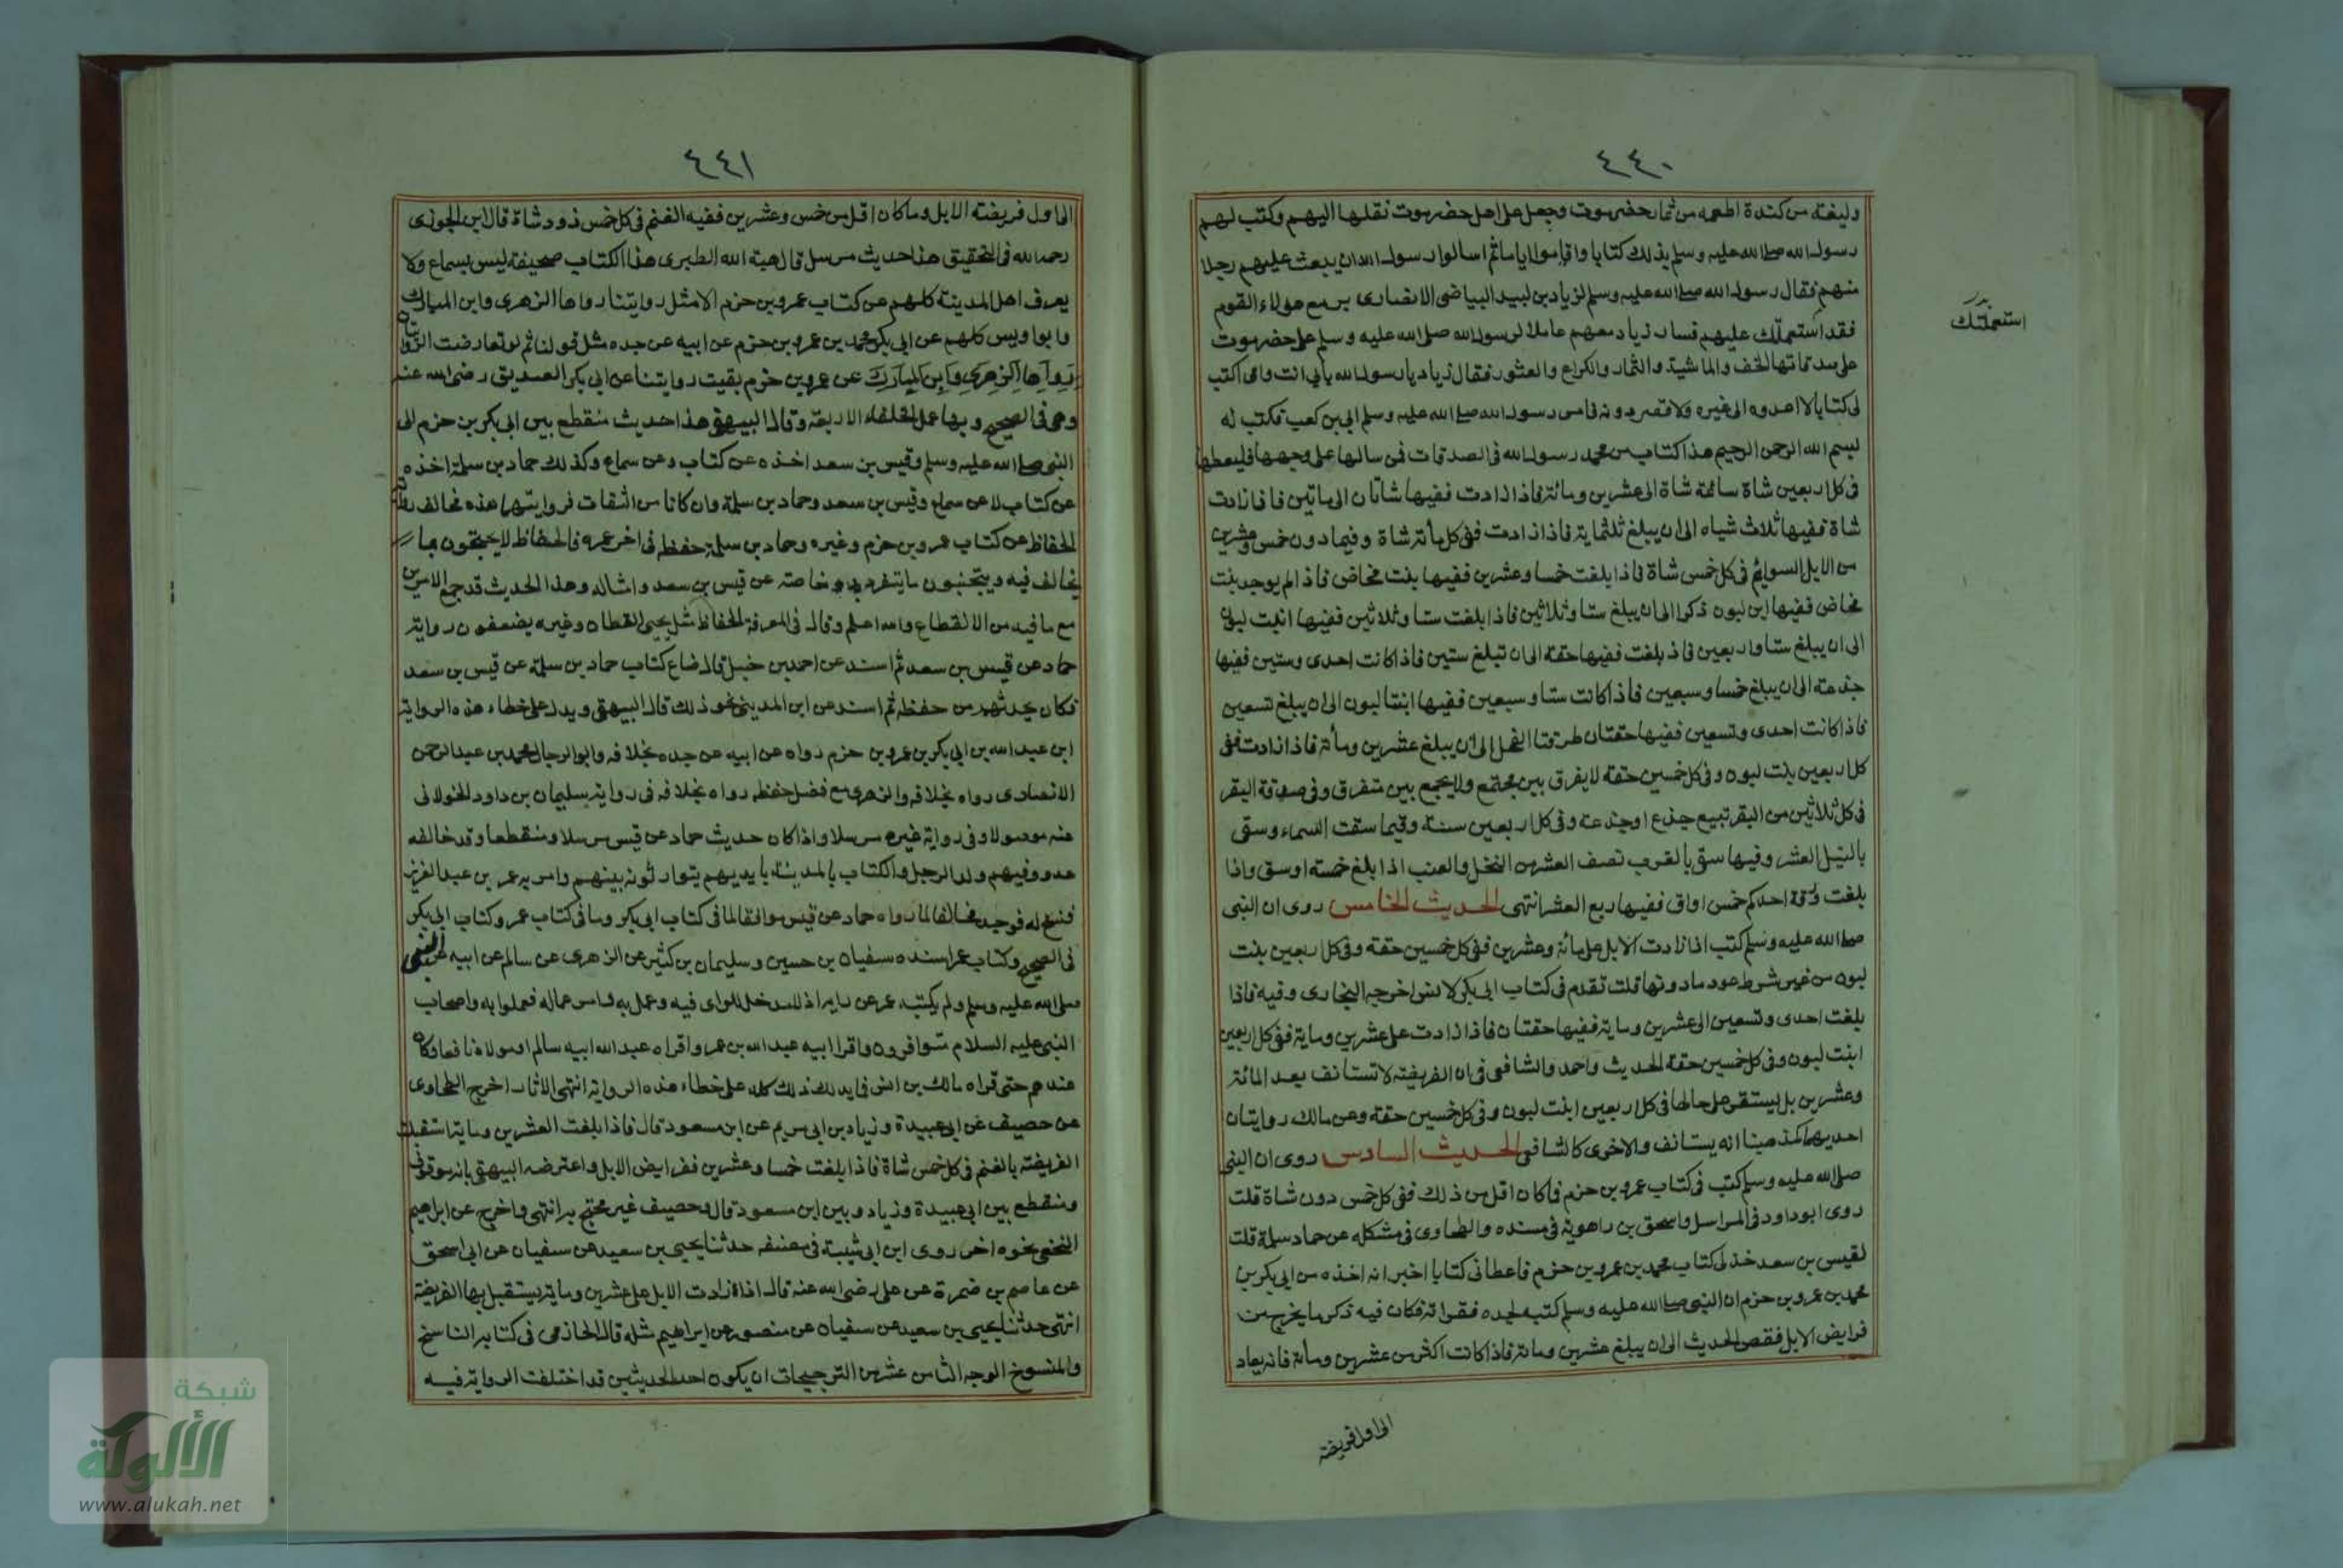 ٤٤٠
وليغته من كندة اطعمه من ثمار حضرموت وجعل على اهل حضرموت نقلها اليهم وكتب لهم
رسول الله صلى الله عليه وسلم بذلك كتابا واقاموا اياما ثم اسالوا رسول الله ان يبعث عليهم رجلا
منهم فقال رسول الله صلى الله عليه وسلم لزياد بن لبيد البياضى الانصارى سر مع هولاء القوم
فقد استعملتك عليهم فسار زياد معهم عاملا لرسول الله صلى الله عليه وسلم على حضرموت
على صدقاتها الخف والماشية والثمار والكراع والعشور فقال زياد يا رسول الله بابى انت وامى اكتب
لى كتابا لا اعدوه الى غيره ولا اقصر دونه فامر رسول الله صلى الله عليه وسلم ابى بن كعب فكتب له
بسم الله الرحمن الرحيم هذا كتاب من محمد رسول الله فى الصدقات فمن سالها على وجهها فليعطها
فى كل اربعين شاة سائمة شاة الى عشرين ومائة فاذا زادت ففيها شاتان الى ماتين فاذا زادت
شاة ففيها ثلاث شياه الى ان يبلغ ثلثماية فاذا زادت ففى كل مائة شاة وفيما دون خمس وعشرين
من الابل السوايم فى كل خمس شاة فاذا بلغت خمسا وعشرين ففيها بنت مخاض فاذا لم يوجد بنت
مخاض ففيها ابن لبون ذكر الى ان يبلغ ستا وثلاثين فاذا بلغت ستا وثلاثين ففيها ابنت لبون
الى ان يبلغ ستا واربعين فاذ بلغت ففيها حقة الى ان تبلغ ستين فاذا كانت احدى وستين ففيها
جذعة الى ان يبلغ خمسا وسبعين فاذا كانت ستا وسبعين ففيها ابنتا لبون الى ان يبلغ تسعين
فاذا كانت احدى وتسعين ففيها حقتان طروقتا الفحل الى ان يبلغ عشرين ومائة فاذا زادت ففى
كل اربعين بنت لبون وفى كل خمسين حقة لا يفرق بين مجتمع ولا يجمع بين متفرق وفى صدقة البقر
فى كل ثلاثين من البقر تبيع جذع او جذعة وفى كل اربعين سنة وفيما سقت السماء وسقى
بالنيل العشر وفيها سقى بالغرب نصف العشر من النخل والعنب اذا بلغ خمسة اوسق واذا
بلغت رقة احدكم خمس اواق ففيها ربع العشر انتهى الحديث الخامس روى ان النبى
صلى الله عليه وسلم كتب اذا زادت الابل على مائة وعشرين ففى كل خمسين حقة وفى كل اربعين بنت
لبون من غير شرط عود ما دونها قلت تقدم فى كتاب ابى بكر لانس اخرجه البخارى وفيه فاذا
بلغت احدى وتسعين الى عشرين وماية ففيها حقتان فاذا زادت على عشرين وماية ففى كل اربعين
ابنت لبون وفى كل خمسين حقة الحديث واحمد والشافعى فى ان الفريضة لا تستانف بعد المائة
وعشرين بل يستقر على حالها فى كل اربعين ابنت لبون وفى كل خمسين حقة وعن مالك روايتان
احديهما كمذهبنا انه يستانف والاخرى كالشافعى الحديث السادس روى ان النبى
صلى الله عليه وسلم كتب فى كتاب عمرو بن حزم فما كان اقل من ذلك ففى كل خمس دون شاة قلت
روى ابو داود فى المراسل واسحق بن راهوية فى مسنده والطحاوى فى مشكله عن حماد سلمة قلت
لقيس بن سعد خذ لى كتاب محمد بن عمرو بن حزم فاعطانى كتابا اخبر انه اخذه من ابى بكر بن
محمد بن عمرو بن حزم ان النبى صلى الله عليه وسلم كتبه لجده فقراته فكان فيه ذكر ما يخرج من
فرايض الابل فقص الحديث الى ان يبلغ عشرين ومائة فاذا كانت اكثر من عشرين ومائة فانه يعاد
الى اول فريضة
استعملتك
٤٤١
الى اول فريضة الابل وما كان اقل من خمس وعشرين ففيه الغنم فى كل خمس ذود شاة قال ابن الجوزى
رحمه الله فى التحقيق هذا حديث مرسل قال هبة الله الطبرى هذا الكتاب صحيفة ليس بسماع ولا
يعرف اهل المدينة كلهم عن كتاب عمرو بن حزم الا مثل روايتنا رواها الزهرى وابن المبارك
وابو اويس كلهم عن ابى بكر محمد بن عمرو بن حزم عن ابيه عن جده مثل قولنا ثم لو تعارضت الروايتان
رواها الزهرى وابن المبارك عن عمرو بن حزم بقيت روايتنا عن ابى بكر الصديق رضى الله عنه
وهى فى الصحيح وبها عمل الخلفاء الاربعة وقال البيهقى هذا حديث منقطع بين ابى بكر بن حزم الى
النبى صلى الله عليه وسلم وقيس بن سعد اخذه عن كتاب وعن سماع وكذلك حماد بن سلمة اخذه
عن كتاب لا عن سماع وقيس بن سعد وحماد بن سلمة وان كانا من الثقات فروايتهما هذه تخالف رواية
الحفاظ عن كتاب عمرو بن حزم وغيره وحماد بن سلمة حفظه فى اخر عمره فالحفاظ لا يحتجون بما
يخالف فيه ويتجنبون ما يتفرد به وخاصة عن قيس بن سعد وامثاله وهذا الحديث قد جمع الامرين
مع ما فيه من الانقطاع والله اعلم وقال فى المعرفة الحفاظ مثل يحيى القطان وغيره يضعفون رواية
حماد عن قيس بن سعد ثم اسند عن احمد بن حنبل قال ضاع كتاب حماد بن سلمة عن قيس بن سعد
فكان يحدثهم من حفظه ثم اسند عن ابن المدينى نحو ذلك قال البيهقى ويدل على خطاء هذه الرواية
ابن عبد الله بن ابى بكر بن عمرو بن حزم رواه عن ابيه عن جده بخلافه وابو الرجال محمد بن عبد الرحمن
الانصارى رواه بخلافه والزهرى مع فضل حفظه رواه بخلافه فى رواية سليمان بن داود الخولانى
عنه موصولا وفى رواية غيره مرسلا واذا كان حديث حماد عن قيس مرسلا ومنقطعا وقد خالفه
عدد وفيهم ولد الرجل والكتاب بالمدينة بايديهم يتوارثونه بينهم وامر به عمر بن عبد العزيز
فنسخ له فوجد مخالفا لما رواه حماد عن قيس موافقا لما فى كتاب ابى بكر وما فى كتاب عمر وكتاب ابى بكر
فى الصحيح وكتاب عمر اسنده سفيان بن حسين وسليمان بن كثير عن الزهرى عن سالم عن ابيه عن النبى
صلى الله عليه وسلم ولم يكتبه عمر عن رايه اذ لا مدخل للراى فيه وعمل به وامر عماله فعملوا به واصحاب
النبى عليه السلام متوافرون واقرا ابيه عبد الله بن عمر واقراه عبد الله ابيه سالما ومولاه نافعا وكان
عندهم حتى قراه مالك بن انس فايد لك ذلك كله على خطاء هذه الرواية انتهى الاثار اخرج الطحاوى
عن خصيف عن ابى عبيدة وزياد بن ابى مريم عن ابن مسعود قال فاذا بلغت العشرين وماية استقبلت
الفريضة بالغنم فى كل خمس شاة فاذا بلغت خمسا وعشرين ففرايض الابل واعترضه البيهقى بانه موقوف
ومنقطع بين ابى عبيدة وزياد وبين ابن مسعود قال وخصيف غير محتج به انتهى واخرج عن ابراهيم
النخعى نحوه اخر روى ابن ابى شيبة فى مصنفه حدثنا يحيى بن سعيد عن سفيان عن ابى اسحق
عن عاصم بن ضمرة عن على رضى الله عنه قال اذا زادت الابل على عشرين وماية يستقبل بها الفريضة
انتهى حدثنا يحيى بن سعيد عن سفيان عن منصور عن ابراهيم مثله قال الحازمى فى كتابه الناسخ
والمنسوخ الوجه الثامن عشر من الترجيحات ان يكون احد الحديثين قد اختلفت الرواية فيه
شبكة
الألوكة
www.alukah.net